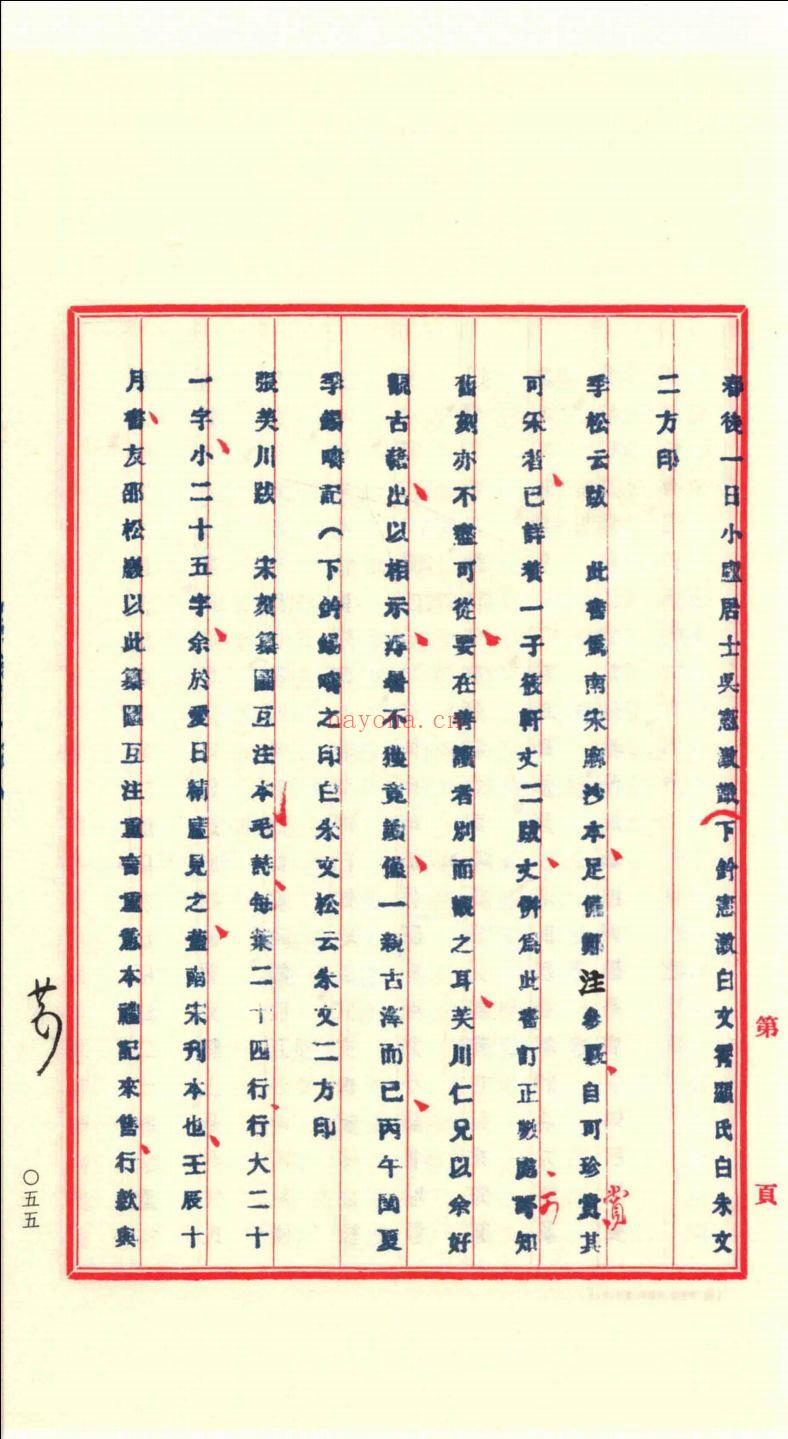 春後一日小匏居士吳憲澂識下鈐憲澂白文霽顥氏白朱文
二方印
季松云跋　此書僞南宋廖抄本足備鄭注參覈自可珍賞其
可采者已詳黃一子筱軒丈二跋丈例爲此書訂正數處可知
舊刻亦不盡可從要在善讀者別而擴之耳芙川仁兄以余好
觀古籍出以相示溽暑不獲竟讀僅一親古澤而已丙午閏夏
季錫疇記（下鈐錫疇之印白朱文松云朱文二方印
張芙川跋　宋刻纂圖互注本毛詩每葉二十四行行大二十
一字小二十五字余於愛日精廬見之蓋南宋刊本也壬辰十
月書友邵松巖以此纂圖互注重言重意本禮記來售行款與
第　頁
賞
可
〇五五
hayona.cn